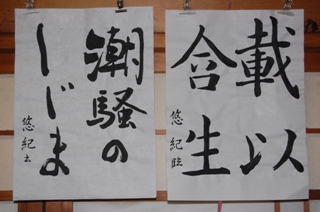 載以
含生
悠紀臨
潮騒の
しじま
悠紀